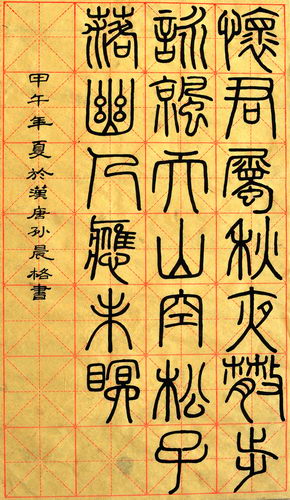 懷君屬秋夜散步
詠涼天山空松子
落幽人應未眠
甲午年夏於漢唐孙晨格書